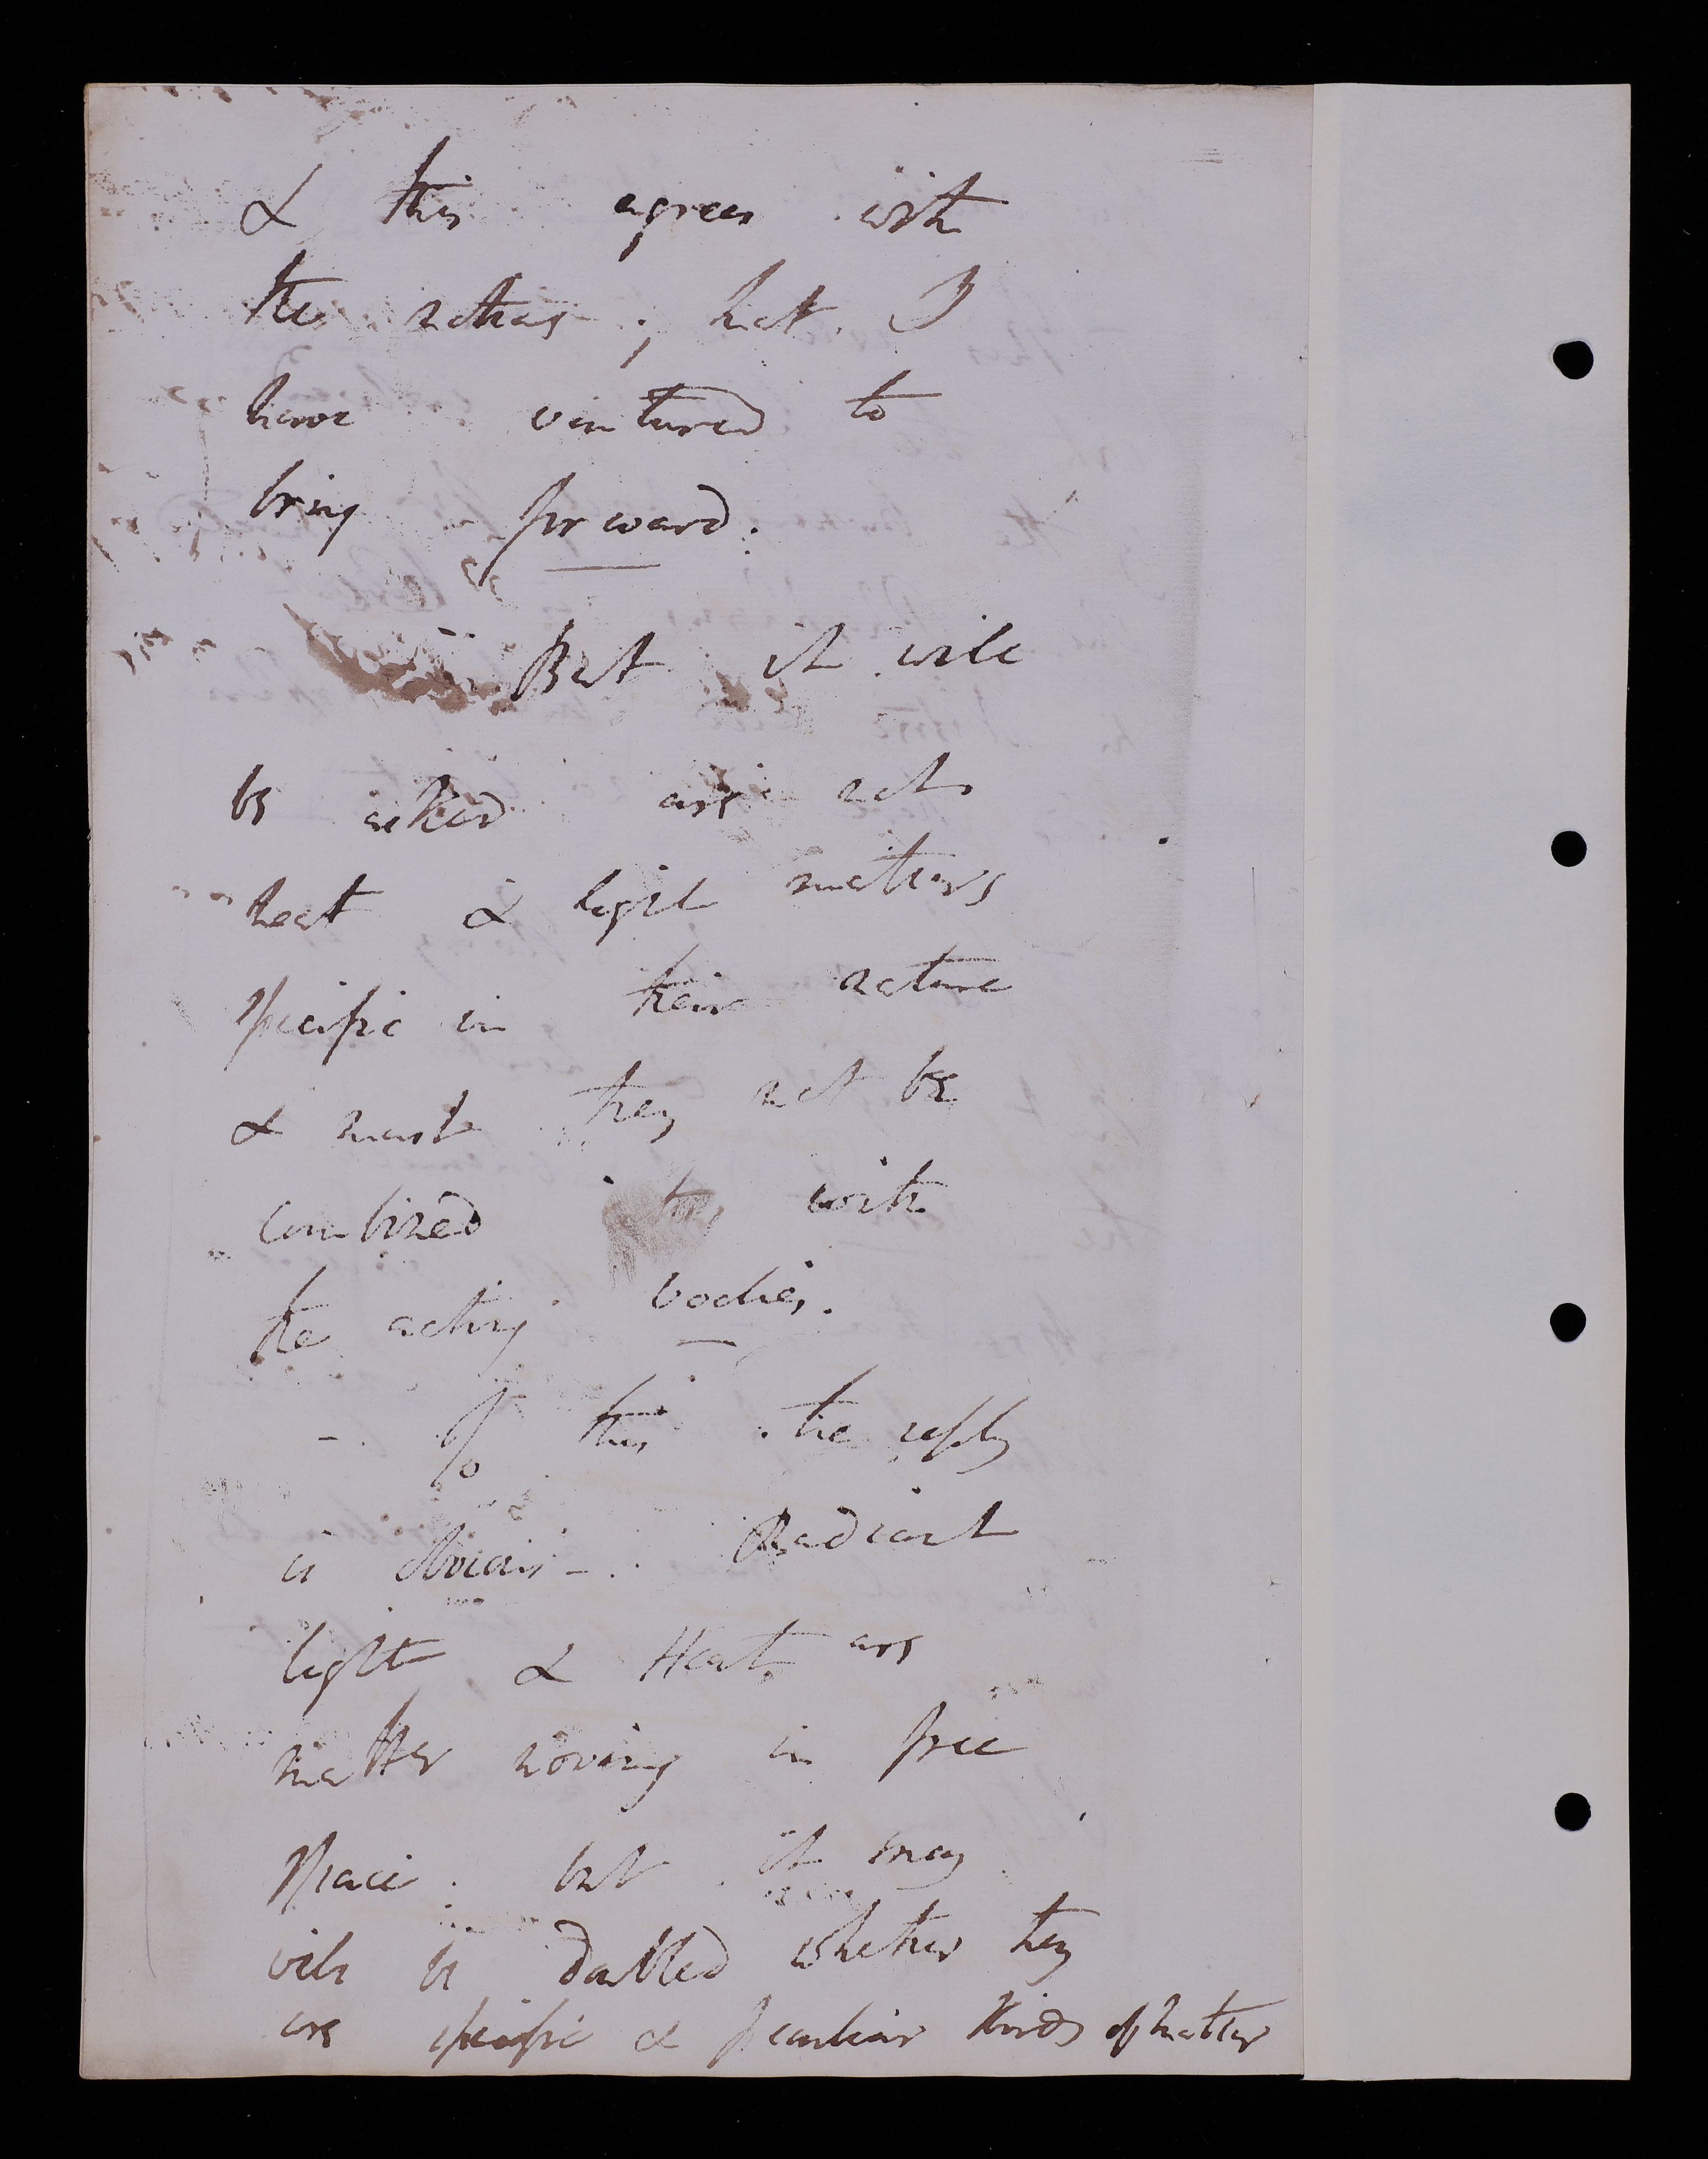 & this agrees with
the notions; that I
have ventured to
bring forward.
But it will
be asked are not
heat & light matters
specific in their nature
& must they not be
combined with
the acting bodies.
To this the reply
is obvious -. Radiant
light & Heat, are
matter moving in free
space. but it may
will be doubted whether they
are specific & peculiar kinds of matter